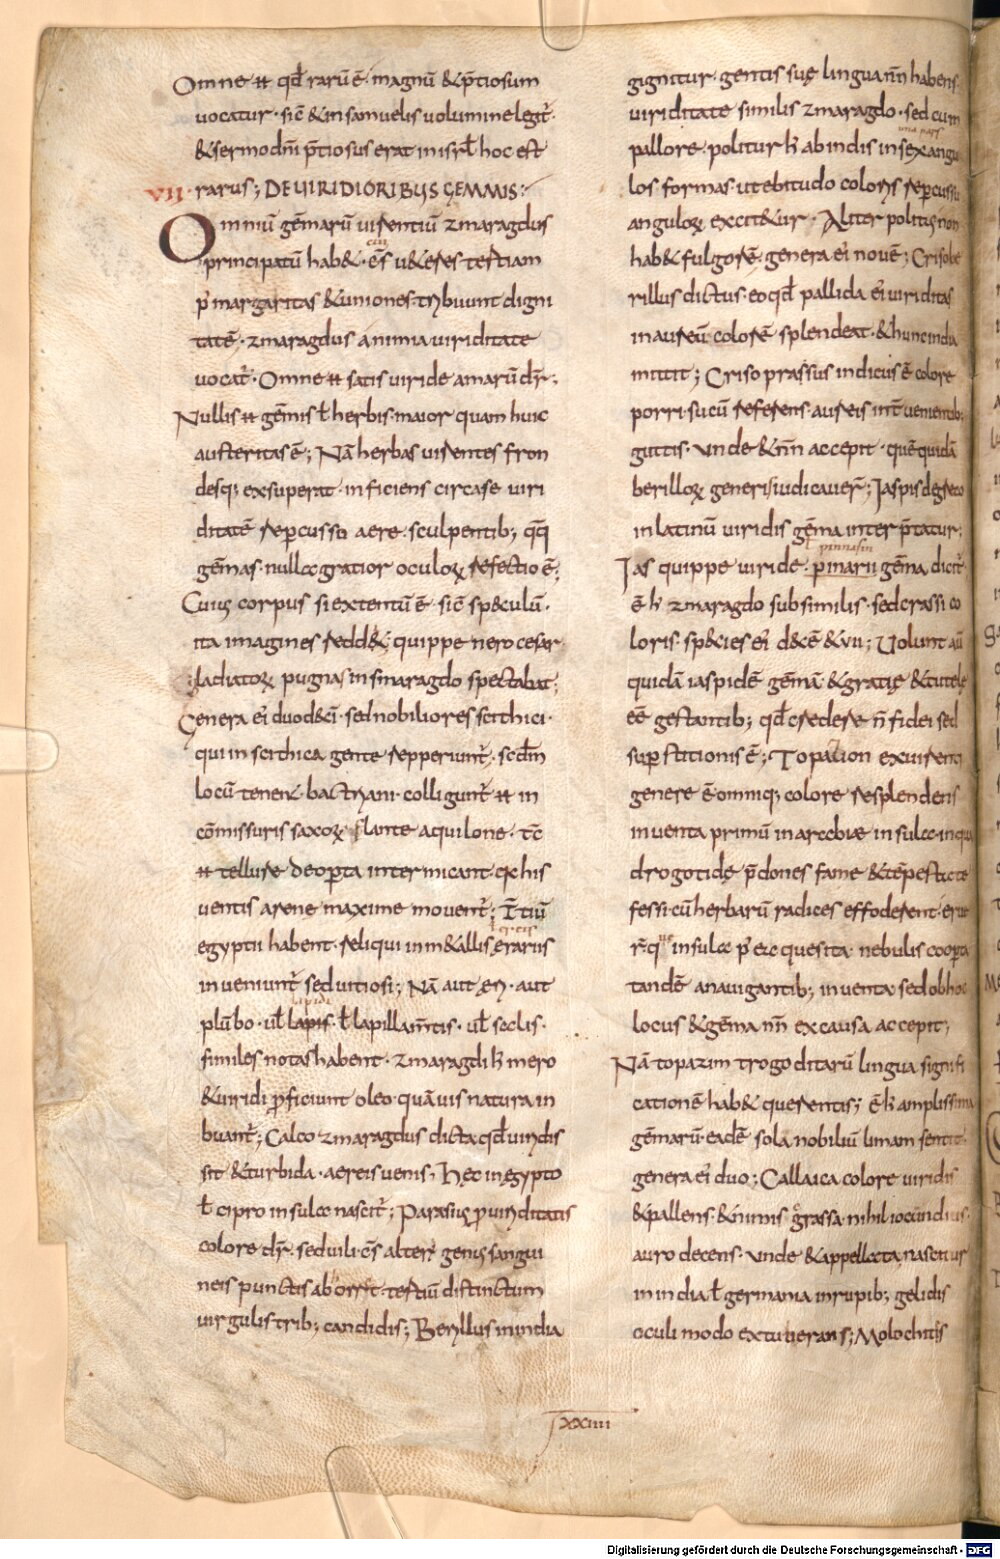 Omne · n̄ · qđ rarū ē · magnū & p̄tiosum
uocatur · sic̄ & in samuelis uolumine legit̄ ·
& sermo dn̄i p̄tiosus erat in isrł hoc est
VII · rarus ; DE VIRIDIORIBUS GEMMIS :
Omniū gēmarū uirentiū zmaragdus
principatū hab& · cui
p' margaritas & uniones tribuunt digni
tatē · zmaragdus a nimia uiriditate
uocat̄ · Omne n̄ satis uiride amarū dr̄ ;
Nullis n̄ gēmis ł herbis maior quam huic
austeritas ē ; Nā herbas uirentes fron
desq; exsuperat · inficiens circa se uiri
ditatē repercusso aere · sculpentib; q̄q̄
gēmas · nulla gratior oculoꝝ refectio ē ;
Cuiꝰ corpus si extentū ē · sic̄ sp&culū ·
ita imagines redd& · quippe nero cesar
gladiatoꝝ pugnas in smaragdo spectabat ;
Genera ei' duodeci · sed nobiliores scithici ·
qui in scithica gente repperiunt̄ · scdm̄
locū tenent bactriani · colligunt̄ n̄ in
cōmissuris saxoꝝ flante aquilone · tc̄
n̄ tellure deopta intermicant · quia his
uentis arene maxime mouent̄ ; Tertiū
egyptii habent · reliqui in m&allis erariis
ereis
inueniunt̄ sed uitiosi ; Nā aut ęri · aut
lapidi
plūbo · uł lapis · ł lapillam̄tis · uł seclis ·
similes notas habent · zmaragdi h' mero
& uiridi p̄ficiunt oleo · quāuis natura in
buant̄ ; Calco zmaragdus dicta qđ uiridis
sit & turbida · aereis uenis · Hęc in ęgypto
ł cipro insula nascit̄ ; Parasiꝰ a uiriditatis
colore dr̄ · sed uilis alter genꝰ sangui
neis punctis aborret · tertiū distinctum
uirgulis trib; candidis ; Beryllus in india
gignitur · gentis suę lingua nn̄ habens
uiriditate similis zmaragdo · sed cum
pallore · politur h' ab indis in sexangu
los formas · ut ebitudo coloris repercussu
anguloꝝ excit&ur · Aliter politꝰ non
hab& fulgorē · genera ei' nouē ; Crisobe
rillus dictus · eo qđ pallida ei' uiriditas
in aureū colorē splendeat · & hunc india
mittit ; Crisoprassus indicus ē colore
porri · sucū referens · aureis int̄ uenientib;
guttis · unde & nn̄ accepit · quē quidā
berilloꝝ generi iudicauer̄ ; Iaspis de greco
in latinū uiridis gēma interp̄tatur ;
Ias quippe uiride · pinarii gēma dicit̄
pinnasin
ē h' zmaragdo subsimilis · sed crassi co
loris · sp&ies ei' d&cē & vii ; Uolunt aū
quidā iaspidē gēmā · & gratię & tutelę
eē gestantib; qđ credere n̄ fidei sed
sup̄stitionis ē ; Topazion ex uirenti
genere ē omniq; colore resplendens
inuenta primū in arabiae insula in qua
drogotidę p̄dones fame & tēpestate
fessi cū herbarū radices effoderent · erue
r̄q̄ue insula p' ea quesita · nebulis coopta
tandē a nauigantib; inuenta sed ob hoc
locus & gēma nn̄ ex causa accepit ;
Nā topazim trogoditarū lingua signifi
cationē hab& querentis ; ē h' amplissima
gēmarū · eadē sola nobiliū limam sentit ·
genera ei' duo ; Callaica colore uiridis
& pallens · & nimis grassa · nihil iocundius
auro decens · unde & appellata nascitur
in india ł germania in rupib; gelidis
oculi modo extuberans ; Molochitis
XXIIII
Digitalisierung gefördert durch die Deutsche Forschungsgemeinschaft - DFG